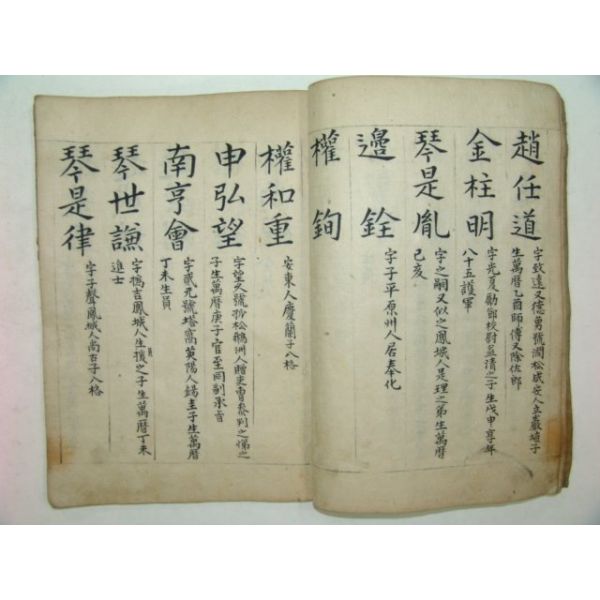 趙任道
字致遠又德勇號澗松咸安人立巖埴子
生萬曆乙酉師傅又除佐郎
金柱明
字光夏勵節校尉益清之子生戊申享年
八十五護軍
琴是胤
字之嗣又似之鳳城人是理之弟生萬曆
己亥
邉銓
字子平原州人居奉化
權銁
權和重
安東人慶蘭子入格
申弘望
字望久號孤松鵝洲人贈吏曹參判之悌之
子生萬曆庚子官至同副承旨
南亨會
字武元號塔窩英陽人錫圭子生萬曆
丁未生員
琴世謙
字撝吉鳳城人生員㨿之子生萬曆丁未
進士
琴是律
字子聲鳳城人尚古子入格